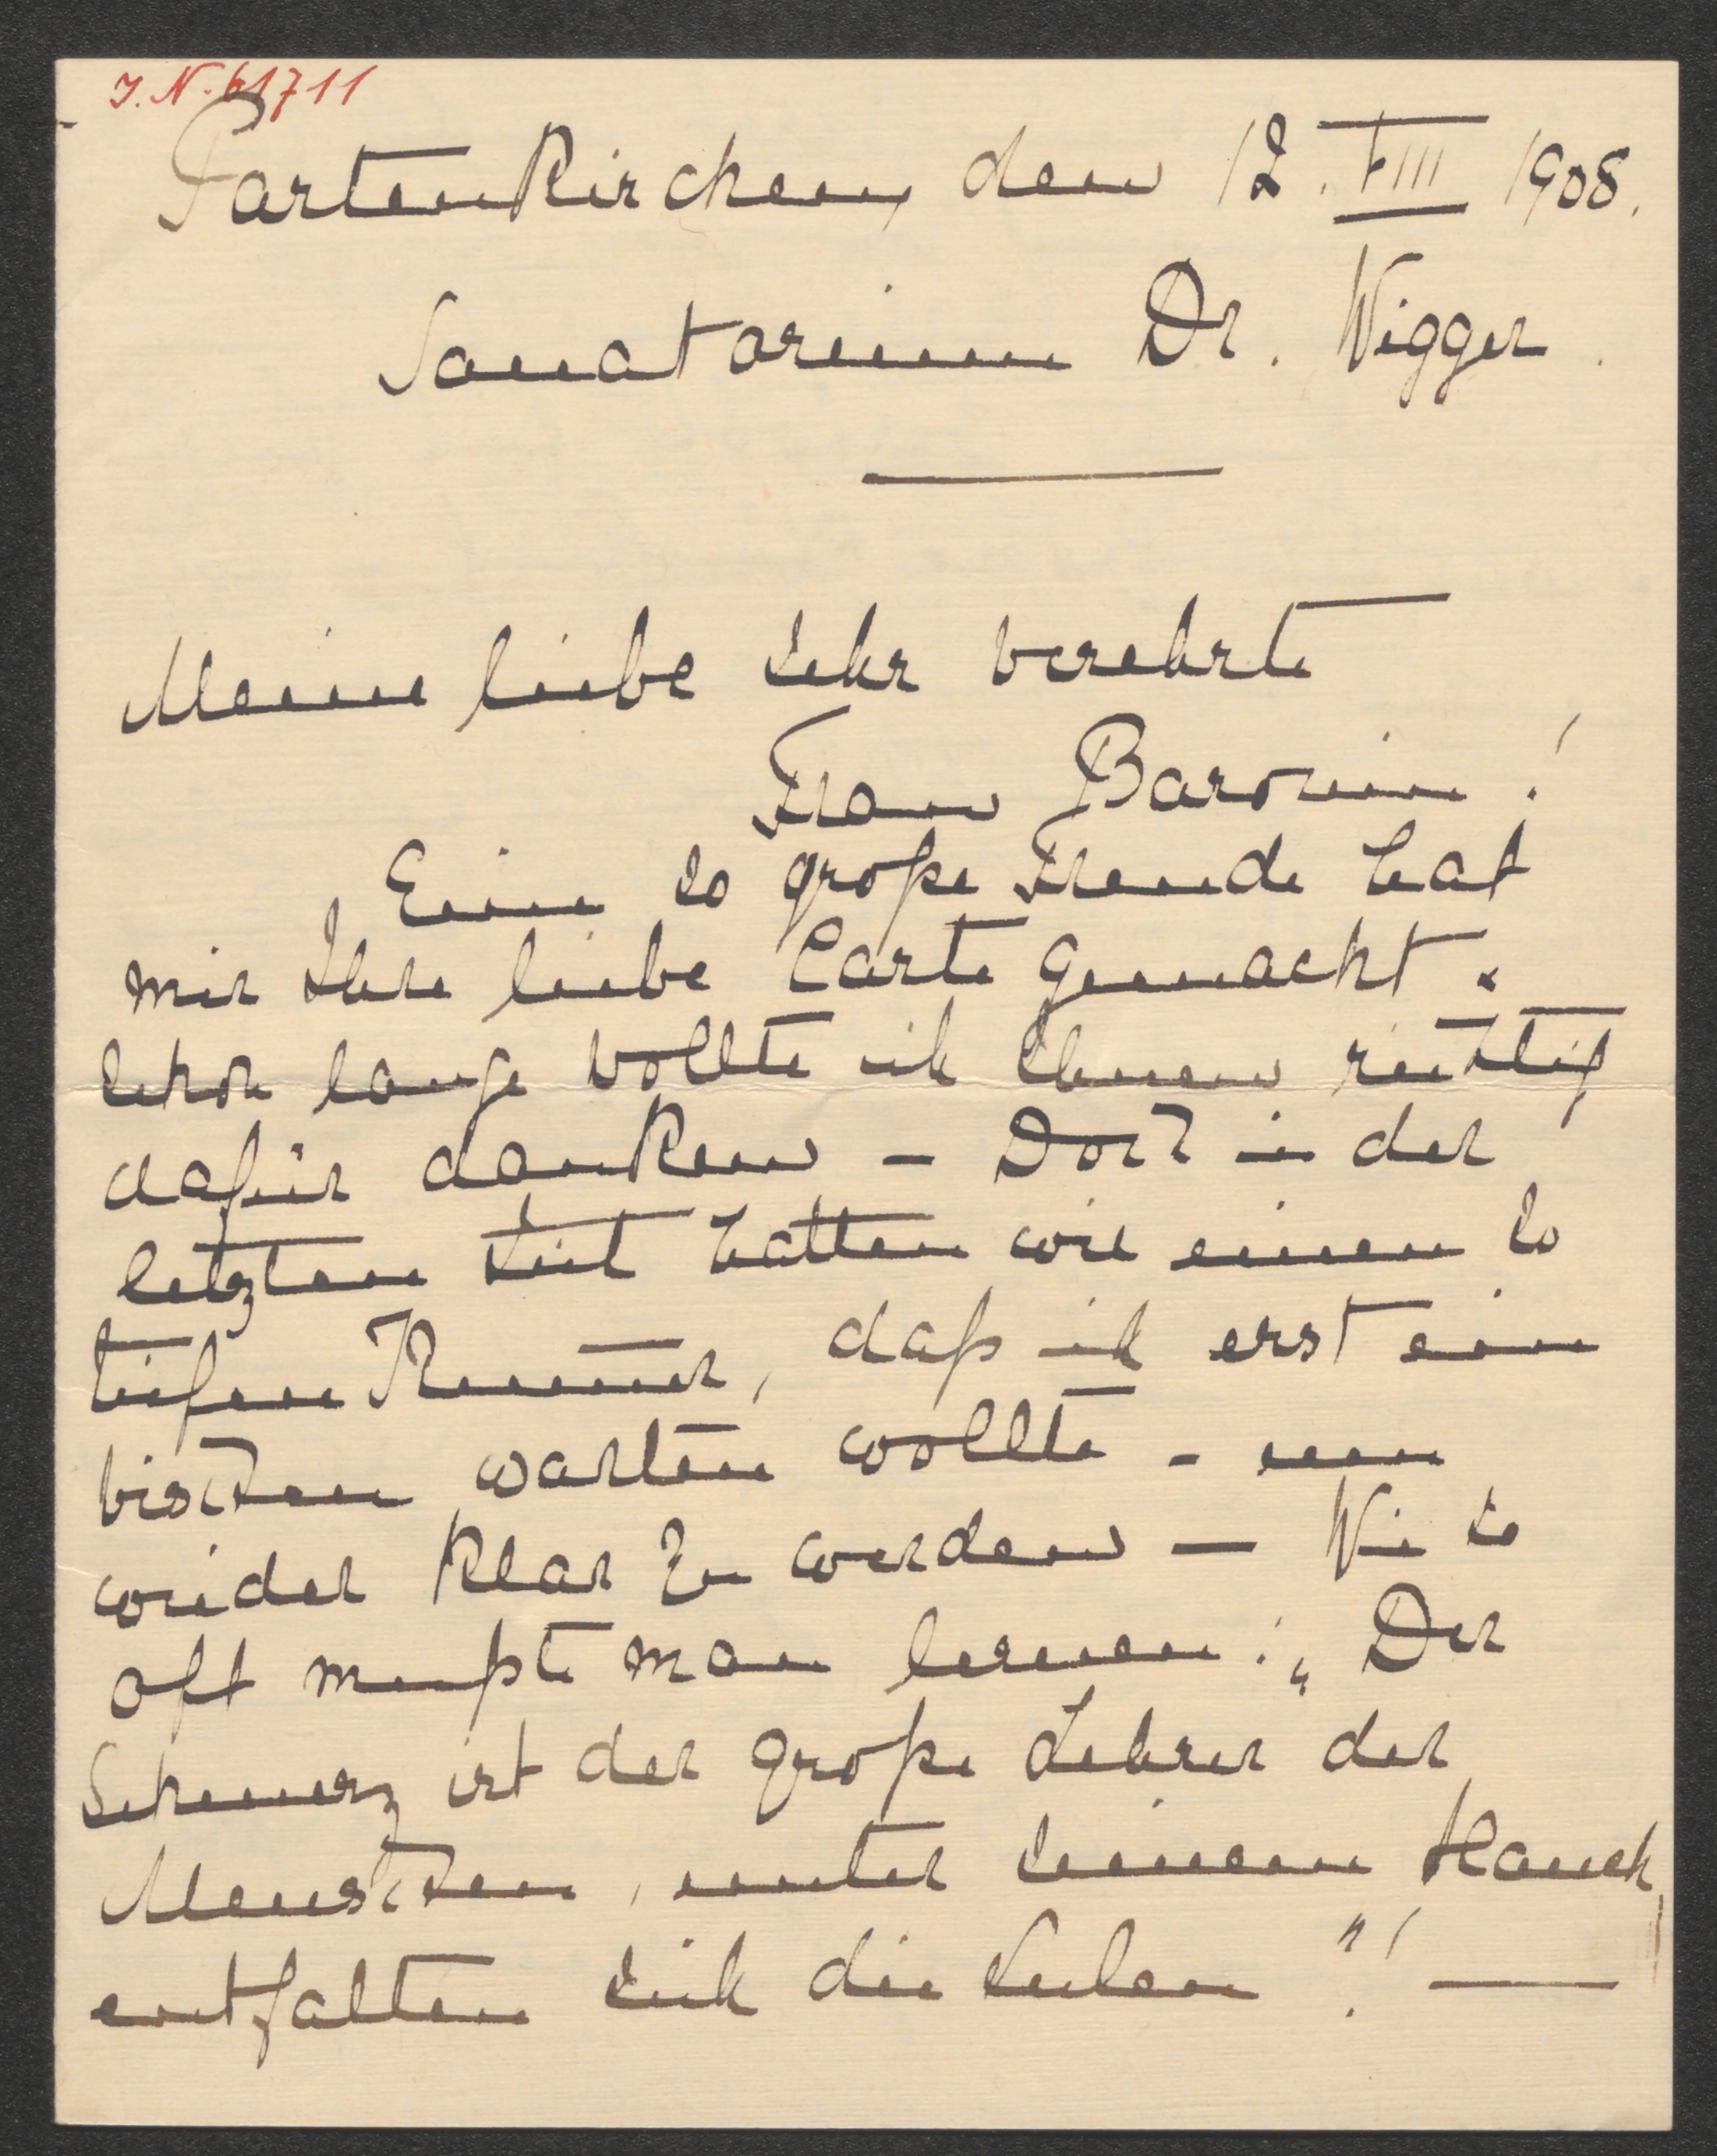 I. N. 61711
Partenkirchen, den 12. VIII 1908.
Sanatorium Dr. Wigger.
Meine liebe sehr verehrte
Frau Baronin!
Eine so große Freude hat
mir Ihre liebe Carte gemacht.
schon lange wollte ich Ihnen richtig
dafür danken – Doch in der
letzten Zeit hatten wir einen so
tiefen Kummer, daß ich erst ein
bischen warten wollte – um
wieder klar zu werden – Wie so
oft mußte man lernen: „Der
Schmerz ist der große Lehrer der
Menschen, unter seinem Hauch
entfalten sich die Seelen"! —